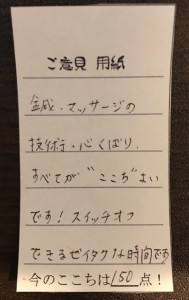 ご意見 用紙
鍼・マッサージの
技術・心くばり、
すべてが“ここち”よい
です！スイッチオフ
できるゼイタクな時間です
今のここちは150点！